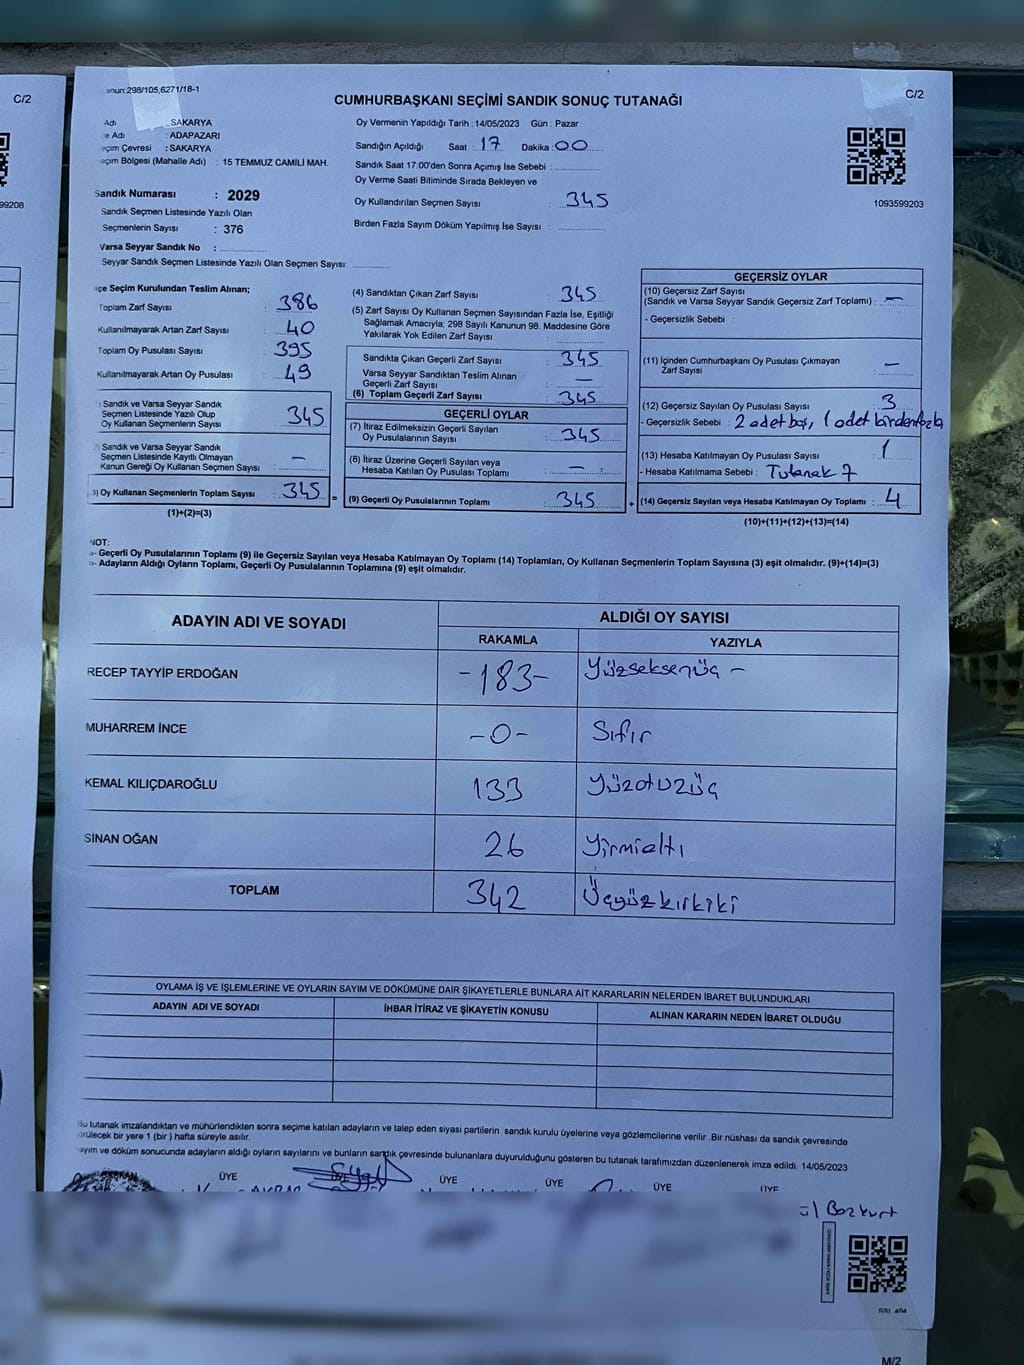 C/2
99208
anun:298/105,6271/18-1
CUMHURBAŞKANI SEÇİMİ SANDIK SONUÇ TUTANAĞI
C/2
Adı : SAKARYA
e Adı : ADAPAZARI
eçim Çevresi : SAKARYA
eçim Bölgesi (Mahalle Adı) : 15 TEMMUZ CAMİLİ MAH.
Sandık Numarası : 2029
Sandık Seçmen Listesinde Yazılı Olan
Seçmenlerin Sayısı : 376
Varsa Seyyar Sandık No :
Seyyar Sandık Seçmen Listesinde Yazılı Olan Seçmen Sayısı:
Oy Vermenin Yapıldığı Tarih : 14/05/2023 Gün : Pazar
Sandığın Açıldığı Saat : 17 Dakika : 00
Sandık Saat 17:00'den Sonra Açımış İse Sebebi :
Oy Verme Saati Bitiminde Sırada Bekleyen ve
Oy Kullandırılan Seçmen Sayısı : 345
Birden Fazla Sayım Döküm Yapılmış İse Sayısı :
1093599203
içe Seçim Kurulundan Teslim Alınan;
Toplam Zarf Sayısı : 386
Kullanılmayarak Artan Zarf Sayısı : 40
Toplam Oy Pusulası Sayısı : 395
Kullanılmayarak Artan Oy Pusulası : 49
) Sandık ve Varsa Seyyar Sandık
Seçmen Listesinde Yazılı Olup
Oy Kullanan Seçmenlerin Sayısı : 345
) Sandık ve Varsa Seyyar Sandık
Seçmen Listesinde Kayıtlı Olmayan
Kanun Gereği Oy Kullanan Seçmen Sayısı : –
3) Oy Kullanan Seçmenlerin Toplam Sayısı : 345 =
(1)+(2)=(3)
(4) Sandıktan Çıkan Zarf Sayısı : 345
(5) Zarf Sayısı Oy Kullanan Seçmen Sayısından Fazla İse, Eşitliği
Sağlamak Amacıyla; 298 Sayılı Kanunun 98. Maddesine Göre
Yakılarak Yok Edilen Zarf Sayısı :
Sandıkta Çıkan Geçerli Zarf Sayısı : 345
Varsa Seyyar Sandıktan Teslim Alınan
Geçerli Zarf Sayısı : –
(6) Toplam Geçerli Zarf Sayısı : 345
GEÇERLİ OYLAR
(7) İtiraz Edilmeksizin Geçerli Sayılan
Oy Pusulalarının Sayısı : 345
(8) İtiraz Üzerine Geçerli Sayılan veya
Hesaba Katılan Oy Pusulası Toplamı : –
(9) Geçerli Oy Pusulalarının Toplamı : 345 +
GEÇERSİZ OYLAR
(10) Geçersiz Zarf Sayısı
(Sandık ve Varsa Seyyar Sandık Geçersiz Zarf Toplamı) : –
- Geçersizlik Sebebi :
(11) İçinden Cumhurbaşkanı Oy Pusulası Çıkmayan
Zarf Sayısı : –
(12) Geçersiz Sayılan Oy Pusulası Sayısı : 3
- Geçersizlik Sebebi : 2 adet boş, 1 adet birdenfazla
(13) Hesaba Katılmayan Oy Pusulası Sayısı : 1
- Hesaba Katılmama Sebebi : Tutanak 7
(14) Geçersiz Sayılan veya Hesaba Katılmayan Oy Toplamı : 4
(10)+(11)+(12)+(13)=(14)
NOT:
a- Geçerli Oy Pusulalarının Toplamı (9) ile Geçersiz Sayılan veya Hesaba Katılmayan Oy Toplamı (14) Toplamları, Oy Kullanan Seçmenlerin Toplam Sayısına (3) eşit olmalıdır. (9)+(14)=(3)
b- Adayların Aldığı Oyların Toplamı, Geçerli Oy Pusulalarının Toplamına (9) eşit olmalıdır.
ADAYIN ADI VE SOYADI
ALDIĞI OY SAYISI
RAKAMLA YAZIYLA
RECEP TAYYİP ERDOĞAN -183- Yüzseksenüç –
MUHARREM İNCE -0- Sıfır
KEMAL KILIÇDAROĞLU 133 Yüzotuzüç
SİNAN OĞAN 26 Yirmialtı
TOPLAM 342 Üçyüzkırkiki
OYLAMA İŞ VE İŞLEMLERİNE VE OYLARIN SAYIM VE DÖKÜMÜNE DAİR ŞİKAYETLERLE BUNLARA AİT KARARLARIN NELERDEN İBARET BULUNDUKLARI
ADAYIN ADI VE SOYADI İHBAR İTİRAZ VE ŞİKAYETİN KONUSU ALINAN KARARIN NEDEN İBARET OLDUĞU
Bu tutanak imzalandıktan ve mühürlendikten sonra seçime katılan adayların ve talep eden siyasi partilerin sandık kurulu üyelerine veya gözlemcilerine verilir .Bir nüshası da sandık çevresinde
örülecek bir yere 1 (bir ) hafta süreyle asılır.
ayım ve döküm sonucunda adayların aldığı oyların sayılarını ve bunların sandık çevresinde bulunanlara duyurulduğunu gösteren bu tutanak tarafımızdan düzenlenerek imza edildi. 14/05/2023
BAŞKAN ÜYE ÜYE ÜYE ÜYE ÜYE ÜYE
Bozkurt
M/2